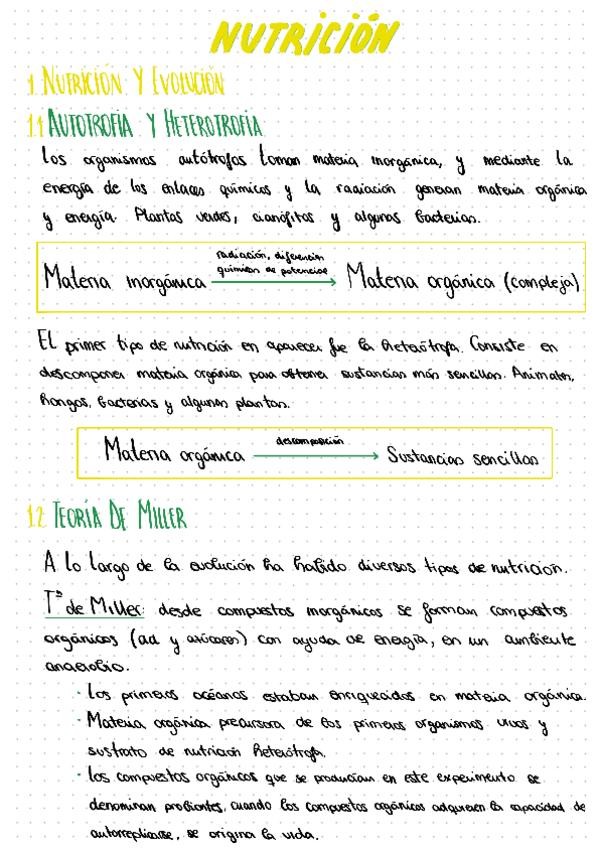 NUTRICIÓN
1. NUTRICIÓN Y EVOLUCIÓN
1.1 AUTOTROFIA Y HETEROTROFIA
Los organismos autótrofos toman materia inorgánica, y mediante la
energía de los enlaces químicos y la radiación generan materia orgánica
y energía. Plantas verdes, cianófitas y algunas bacterias.
radiación, diferencian
químicas de potencial
Materia inorgánica → Materia orgánica (compleja)
El primer tipo de nutrición en aparecer fue la heterótrofa. Consiste en
descomponer materia orgánica para obtener sustancias más sencillas. Animales,
hongos, bacterias y algunas plantas.
descomposición
Materia orgánica → Sustancias sencillas
1.2 TEORÍA DE MILLER
A lo largo de la evolución ha habido diversos tipos de nutrición.
Tª de Miller: desde compuestos inorgánicos se forman compuestos
orgánicos (aa y azúcares) con ayuda de energía, en un ambiente
anaerobio.
· Los primeros océanos estaban enriquecidos en materia orgánica.
· Materia orgánica precursora de los primeros organismos vivos y
sustrato de nutrición heterótrofa.
· Los compuestos orgánicos que se producían en este experimento se
denominan probiontes, cuando los compuestos orgánicos adquieren la capacidad de
autorreplicarse, se origina la vida.